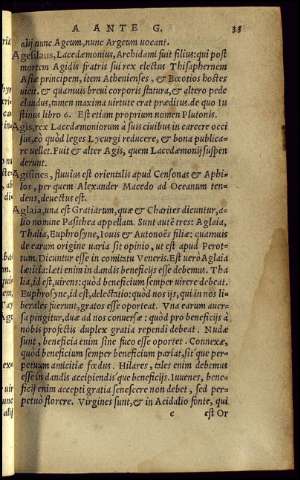 A ANTE G. 38
alij nunc Ageum, nunc Argeum uocant.
Agesilaus, Lacedæmonius, Archidami fuit filius: qui post
mortem Agidis fratris sui rex electus Thisaphernem
Asiæ principem, item Athenienses, & Bœotios hostes
uicit. & quamuis breui corporis statura, & altero pede
claudus, tamen maxima uirtute erat præditus. de quo Iu
stinus libro 6. Est etiam proprium nomen Plutonis.
Agis, rex Lacedæmoniorum à suis ciuibus in carcere occi
sus, eò quòd leges Lycurgi reducere, & bona publica-
re uellet. Fuit & alter Agis, quem Lacedæmonij suspen
derunt.
Agisines, fluuius est orientalis apud Censonas & Aphi-
los, per quem Alexander Macedo ad Oceanum ten-
dens, deuectus est.
Aglaia, una est Gratiarum, quæ & Charites dicuntur, a-
lio nomine Pasithea appellam. Sunt autē tres: Aglaia,
Thalia, Euphrosyne, Iouis & Autonoës filiæ: quamuis
de earum origine uaria sit opinio, ut est apud Perot-
tum. Dicuntur esse in comitatu Veneris. Est uerò Aglaia
lætitia: læti enim in dandis beneficijs esse debemus. Tha
lia, id est, uirens: quòd beneficium semper uirere debeat.
Euphrosyne, id est, delectatio: quòd nos ijs, qui in nos li-
berales fuerunt, gratos esse oporteat. Vna earum auer-
sa pingitur, duæ ad nos conuersæ: quòd pro beneficijs à
nobis profectis duplex gratia rependi debeat. Nudæ
sunt, beneficia enim sine fuco esse oportet. Connexæ,
quòd beneficium semper beneficium pariat, sit que per-
petuum amicitiæ fœdus. Hilares, tales enim debemus
esse in dandis accipiendis'que beneficijs. Iuuenes, bene-
ficij enim accepti gratia senescere non debet, sed per-
petuò florere. Virgines sunt, & in Acidalio fonte, qui
e est Or